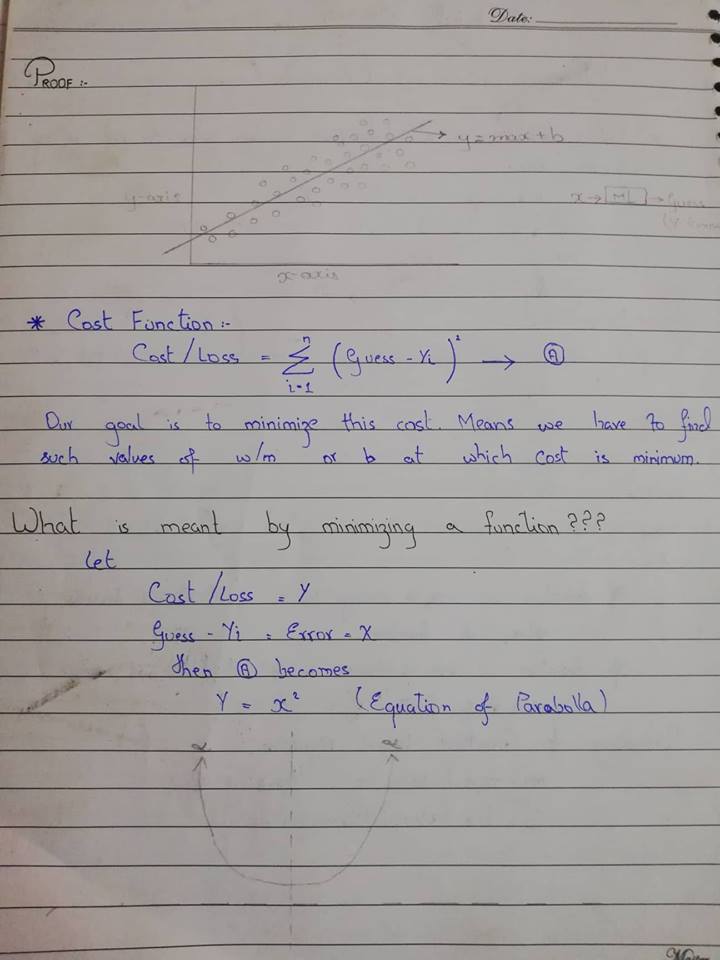 Date:
PROOF :-
y = mx + b
y-axis
x → ML → Guess
x-axis
* Cost Function :-
Cost/Loss = n∑i=1 (Guess - Yi)² → Ⓐ
Our goal is to minimize this cost. Means we have to find
such values of w/m or b at which cost is minimum.
What is meant by minimizing a function???
Let
Cost/Loss = Y
Guess - Yi = Error = X
then Ⓐ becomes
Y = x² (Equation of Parabolla)